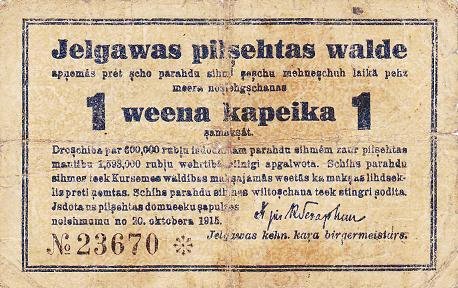 Jelgawas pilsehtas walde
apņemās pret scho parahdu sihmi seschu mehneschuh laikā pehz
meera noslehgschanas
1 weena kapeika 1
samaksāt.
Droschiba par 600,000 rubļu isdodamām parahdu sihmēm zaur pilsehtas
mantibu 1,593,000 rubļu wehrtibā pilnigi apgalwota. Schihs parahdu
sihmes teek Kursemes waldibas maksajamās weetās kā maksas lihdsek-
lis preti ņemtas. Schihs parahdu sihmes wiltoschana teek stingri sodita.
Isdota us pilsehtas domneeku sapulzes
nolehmumu no 20. oktobera 1915.
Jelgawas kehn. kara birģermeistars.
№ 23670 ✻